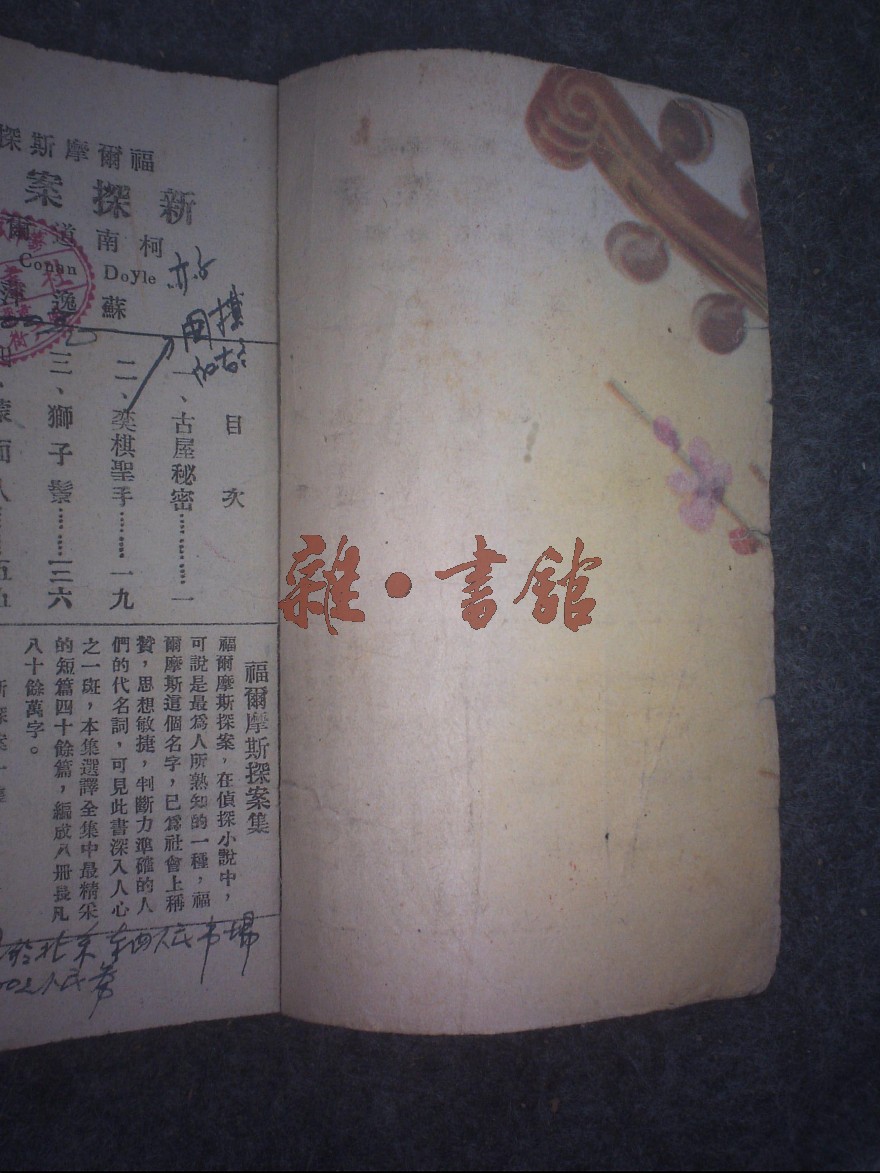 福爾摩斯探
新探案
柯南道爾
Conan Doyle
蘇逸
目次
一、古屋秘密………一
二、奕棋聖手………一九
三、獅子鬃………三六
福爾摩斯探案集
福爾摩斯探案，在偵探小說中，
可說是最爲人所熟知的一種，福
爾摩斯這個名字，已爲社會上稱
贊，思想敏捷，判斷力準確的人
們的代名詞，可見此書深入人心
之一斑，本集選譯全集中最精采
的短篇四十餘篇，編成八册長凡
八十餘萬字。
於北京东四人民市場
雜·書館